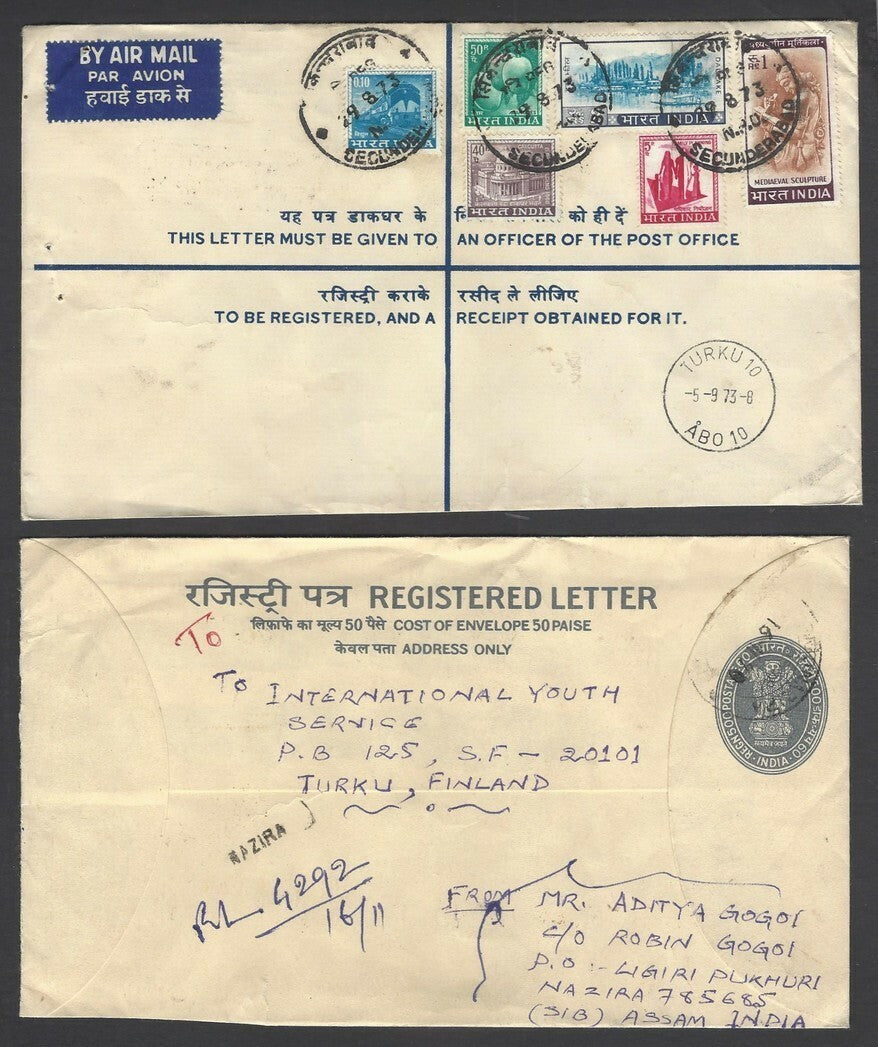 BY AIR MAIL
PAR AVION
हवाई डाक से
सिकन्दराबाद
29 8 73
SECUNDER
0.10
भारत INDIA
50
भारत INDIA
सिकन्दराबाद
29 8 73
SECUNDERABAD
DAL LAKE
भारत INDIA
29 8 73
N.P.O.
SECUNDERABAD
मध्ययुगीन मूर्तिकला
रु 1
RE
MEDIAEVAL SCULPTURE
भारत INDIA
40
भारत INDIA
5
भारत INDIA
यह पत्र डाकघर के को ही दें
THIS LETTER MUST BE GIVEN TO AN OFFICER OF THE POST OFFICE
रजिस्ट्री कराके रसीद ले लीजिए
TO BE REGISTERED, AND A RECEIPT OBTAINED FOR IT.
TURKU 10
-5-9 73-8
ÅBO 10
रजिस्ट्री पत्र REGISTERED LETTER
लिफ़ाफे का मूल्य 50 पैसे COST OF ENVELOPE 50 PAISE
केवल पता ADDRESS ONLY
To
To INTERNATIONAL YOUTH
SERVICE
P.B 125, S.F - 20101
TURKU, FINLAND
INDIA
सत्यमेव जयते
NAZIRA
RL 4292
16/11
FROM MR. ADITYA GOGOI
C/O ROBIN GOGOI
P.O :- LIGIRI PUKHURI
NAZIRA 785685
(SIB) ASSAM INDIA